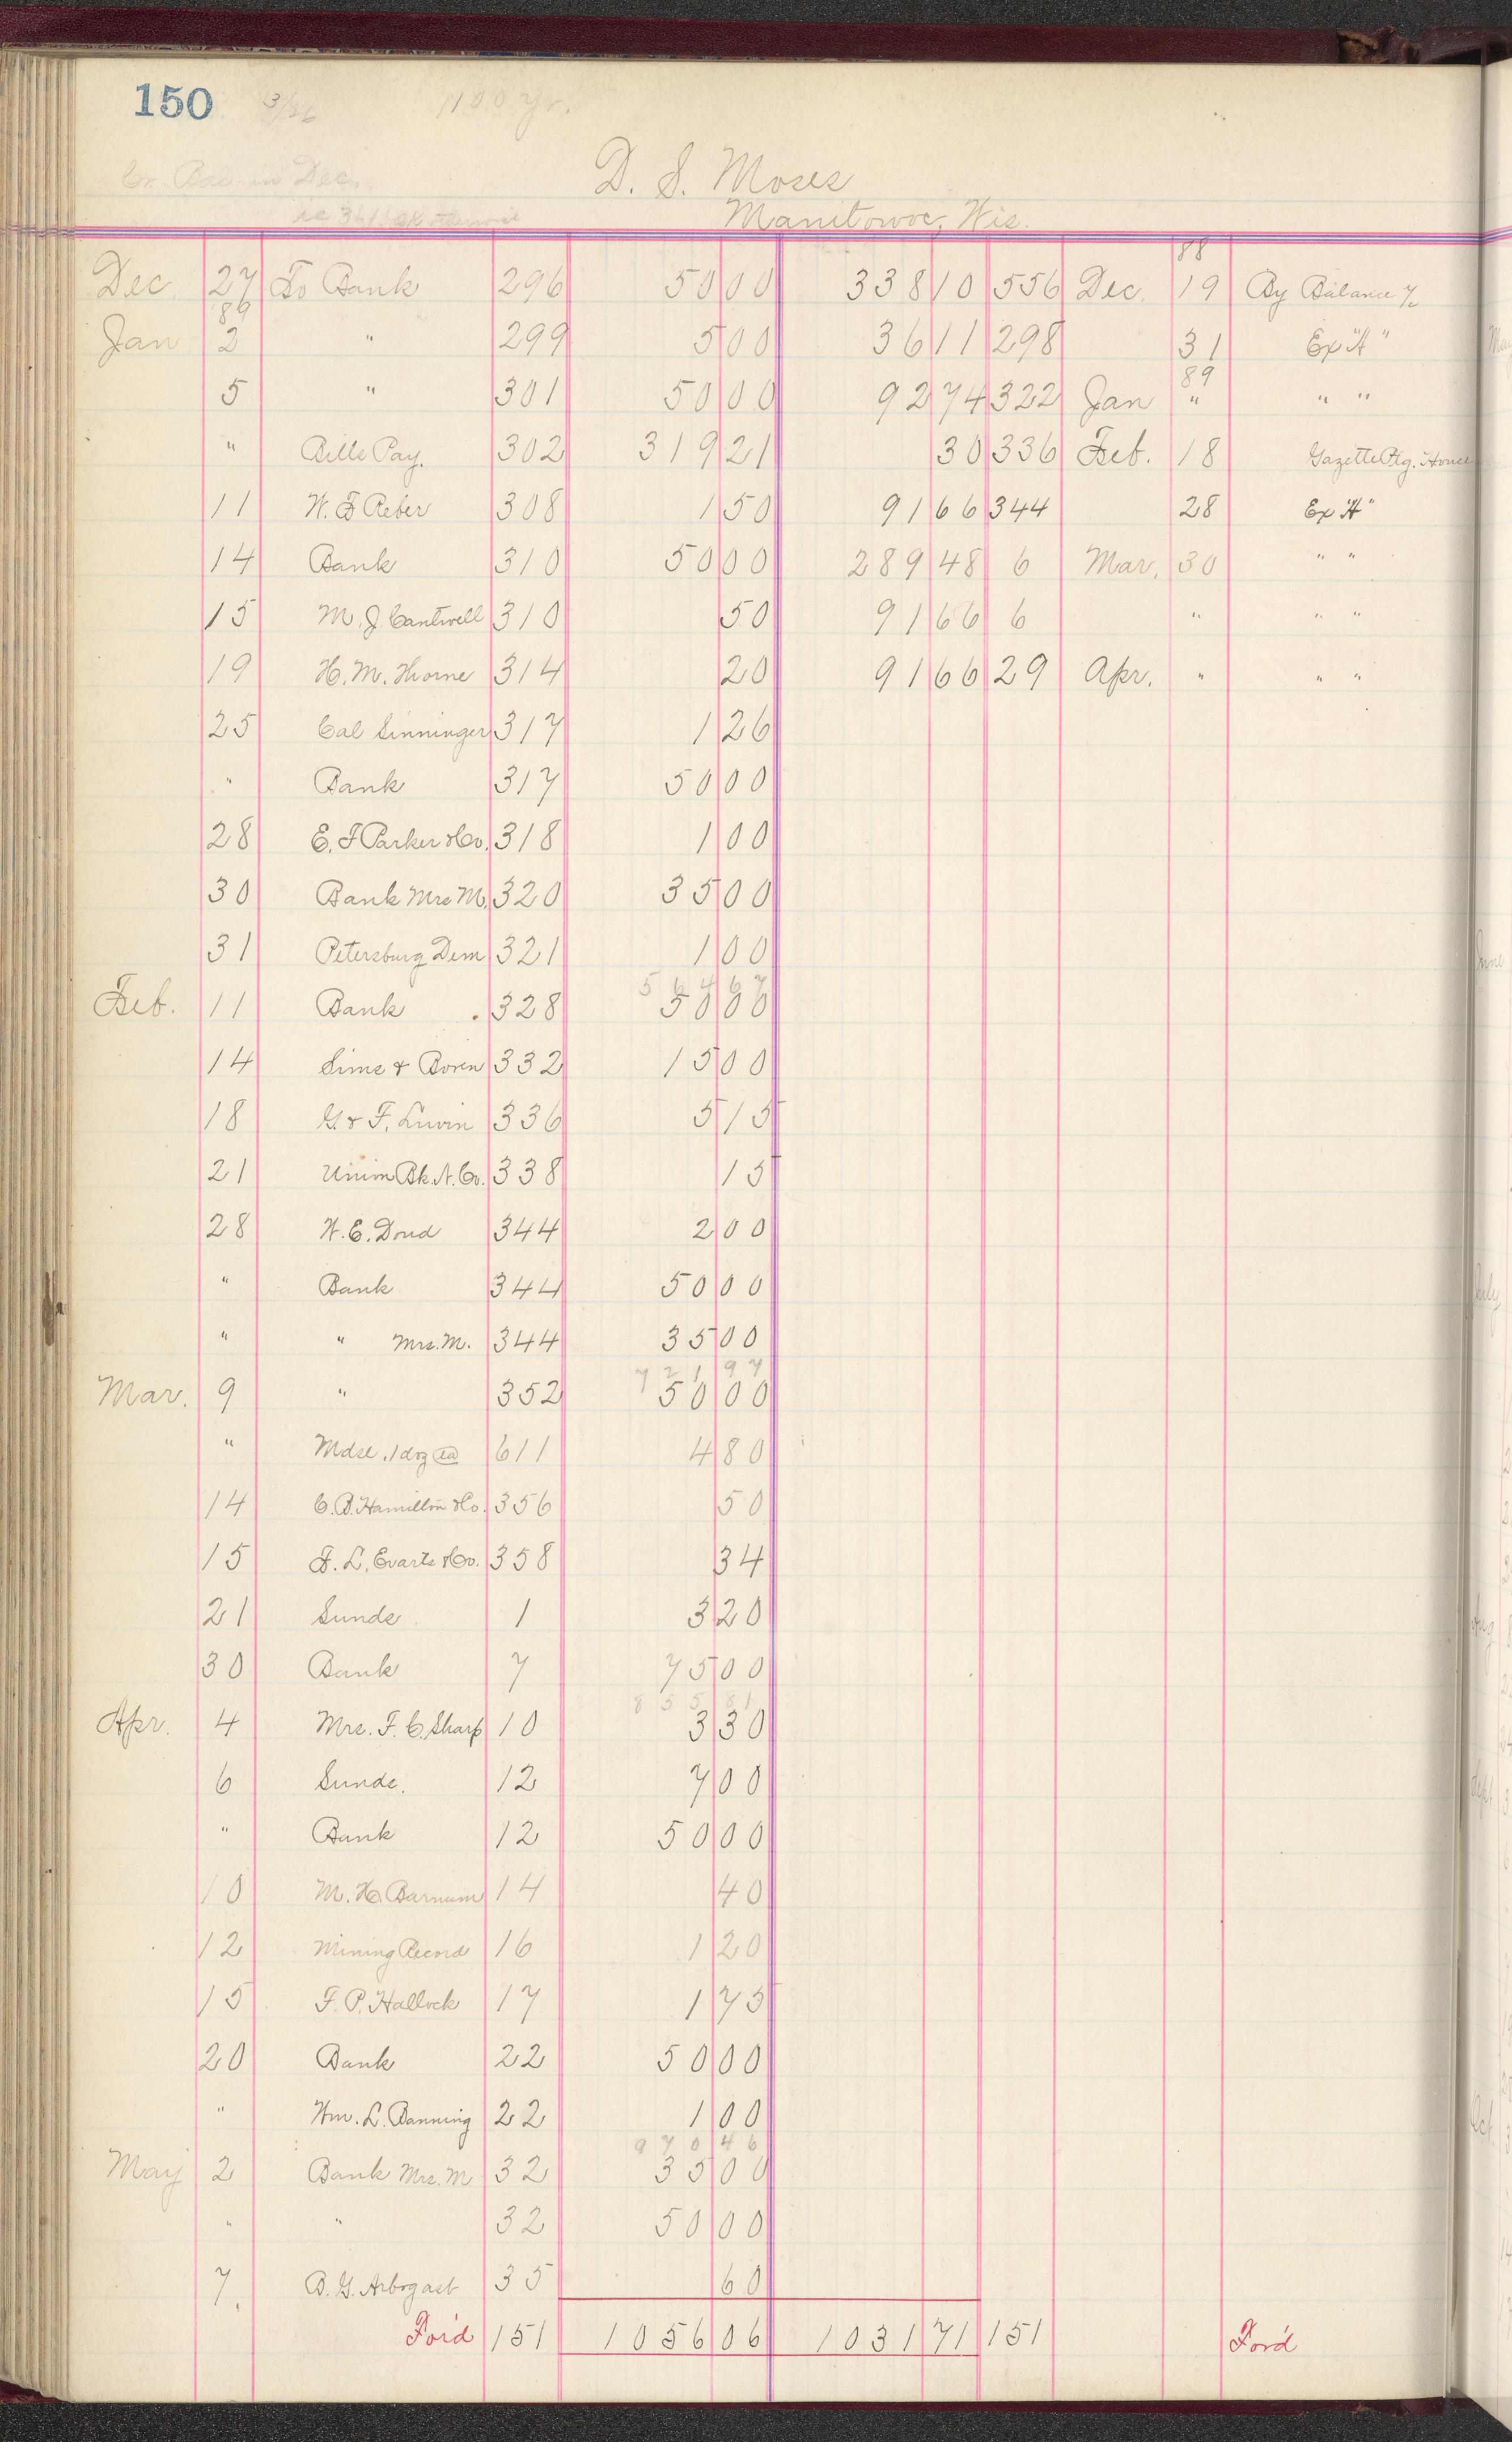 150 3/26 1100 Yr.
Cr. Bal. in Dec.
D. S. Moses
is 361 OK otherwise
Manitowoc, Wis.
88
Dec. 27 To Bank 296 50 00 338 10 556 Dec. 19 By Balance %
89
Jan 2 " 299 5 00 36 11 298 31 Ex "A"
89
5 " 301 50 00 92 74 322 Jan " " "
" Bills Pay. 302 319 21 30 336 Feb. 18 Gazette Ptg. House
11 W. F. Reber 308 1 50 91 66 344 28 Ex "A"
14 Bank 310 50 00 289 48 6 Mar. 30 " "
15 M. J. Cantwell 310 50 91 66 6 " " "
19 H. M. Thorne 314 20 91 66 29 Apr. " " "
25 Cal Sinninger 317 1 26
" Bank 317 50 00
28 E. F Parker & Co. 318 1 00
30 Bank Mrs M. 320 35 00
31 Petersburg Dem 321 1 00
564 67
Feb. 11 Bank 328 50 00
14 Sims & Boren 332 15 00
18 G. & F. 336 5 15
21 Union Bk. N. Co. 338 15
28 W. E. Doud 344 2 00
" Bank 344 50 00
" " Mrs. M. 344 35 00
721 97
Mar. 9 " 352 50 00
" Mdse. 1 doz ea 611 4 80
14 C. B. Hamilton & Co. 356 50
15 F. L. Evarts & Co. 358 34
21 Sunds 1 3 20
30 Bank 7 75 00
855 81
Apr. 4 Mrs. F. C. Sharp 10 3 30
6 Sunds. 12 7 00
" Bank 12 50 00
10 M. H. Barnum 14 40
12 Mining Record 16 1 20
15 F. P. Hallock 17 1 75
20 Bank 22 50 00
" Wm. L. Banning 22 1 00
970 46
May 2 Bank Mrs. M 32 35 00
" " 32 50 00
7. B. G. Arbogast 35 60
For'd 151 1056 06 1031 71 151 For'd